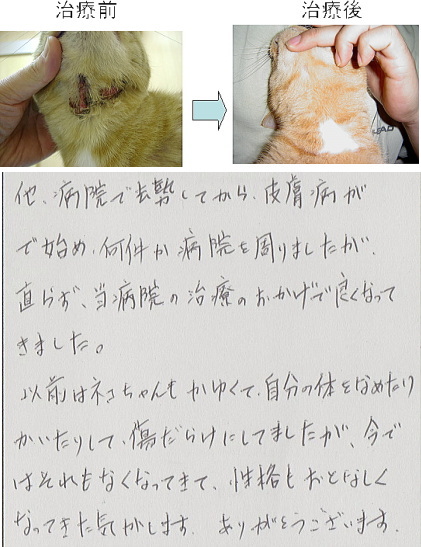 治療前
治療後
他、病院で去勢してから、皮膚病が
で始め、何件か病院を周りましたが、
直らず、当病院の治療のおかげで良くなって
きました。
以前はネコちゃんもかゆくて、自分の体をなめたり
かいたりして、傷だらけにしてましたが、今で
はそれもなくなってきて、性格もおとなしく
なってきた気がします。ありがとうございます。